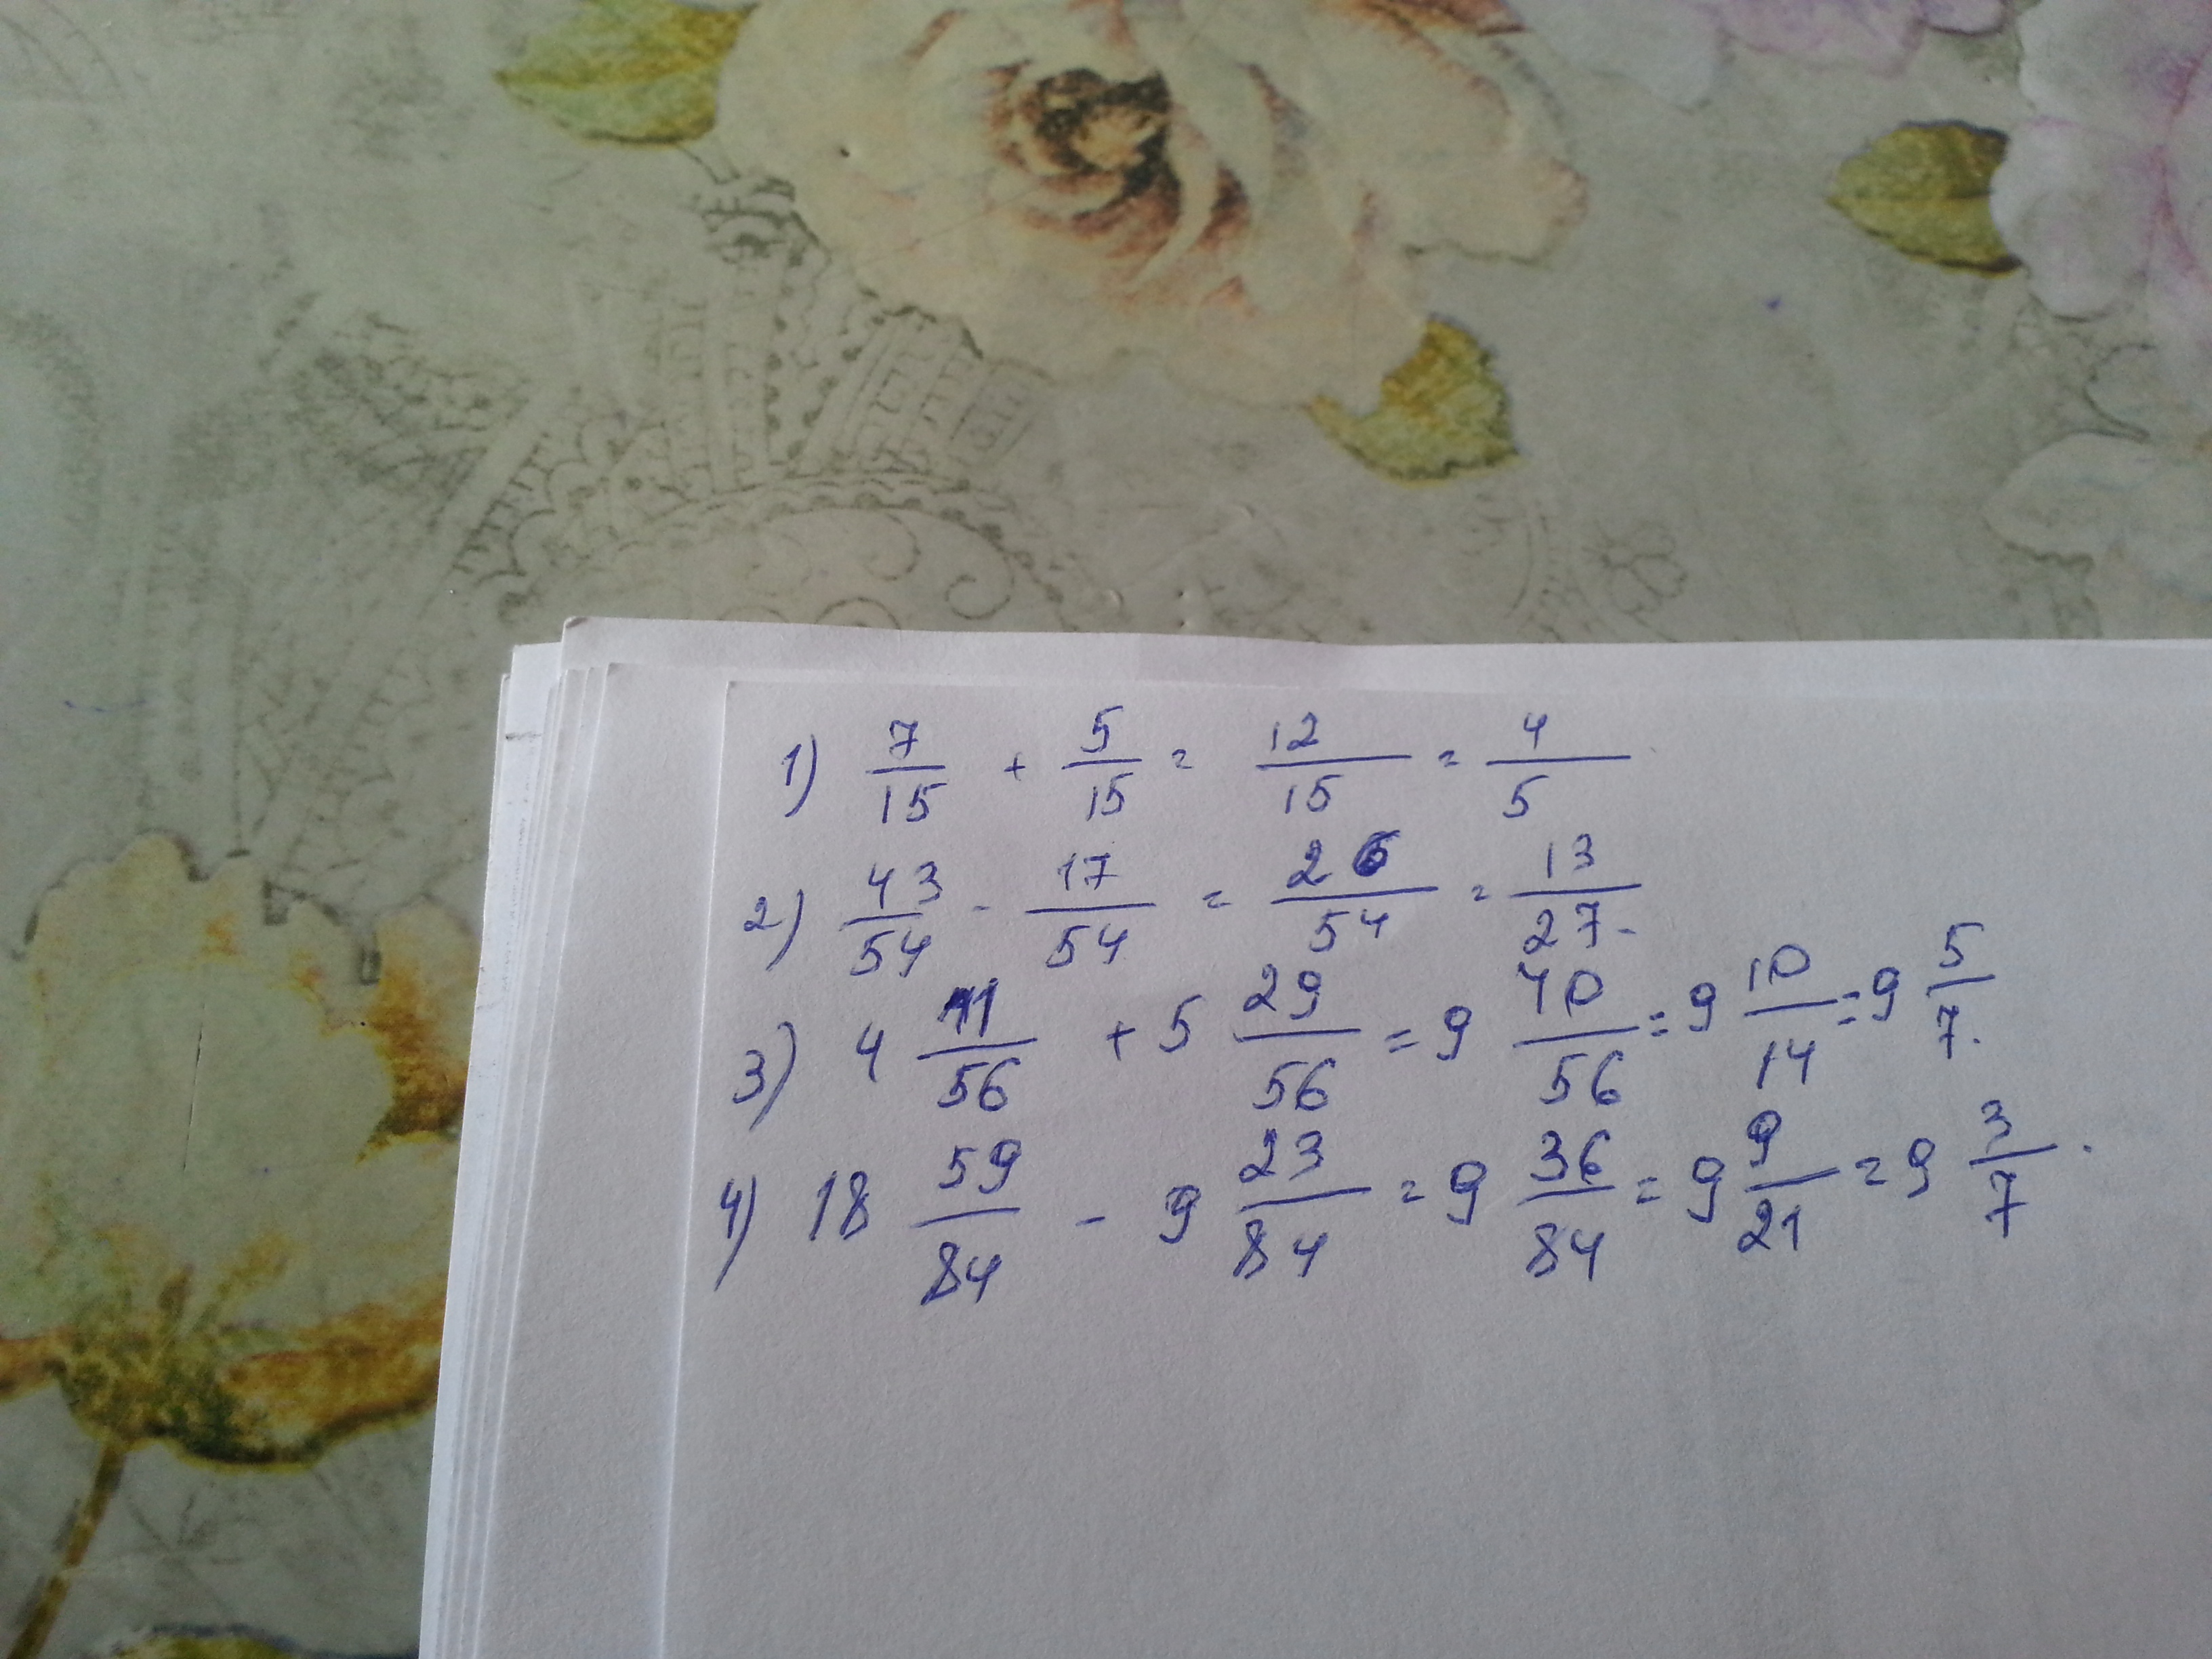 1) 7/15 + 5/15 = 12/15 = 4/5
2) 43/54 - 17/54 = 26/54 = 13/27.
3) 4 11/56 + 5 29/56 = 9 40/56 = 9 10/14 = 9 5/7.
4) 18 59/84 - 9 23/84 = 9 36/84 = 9 9/21 = 9 3/7.